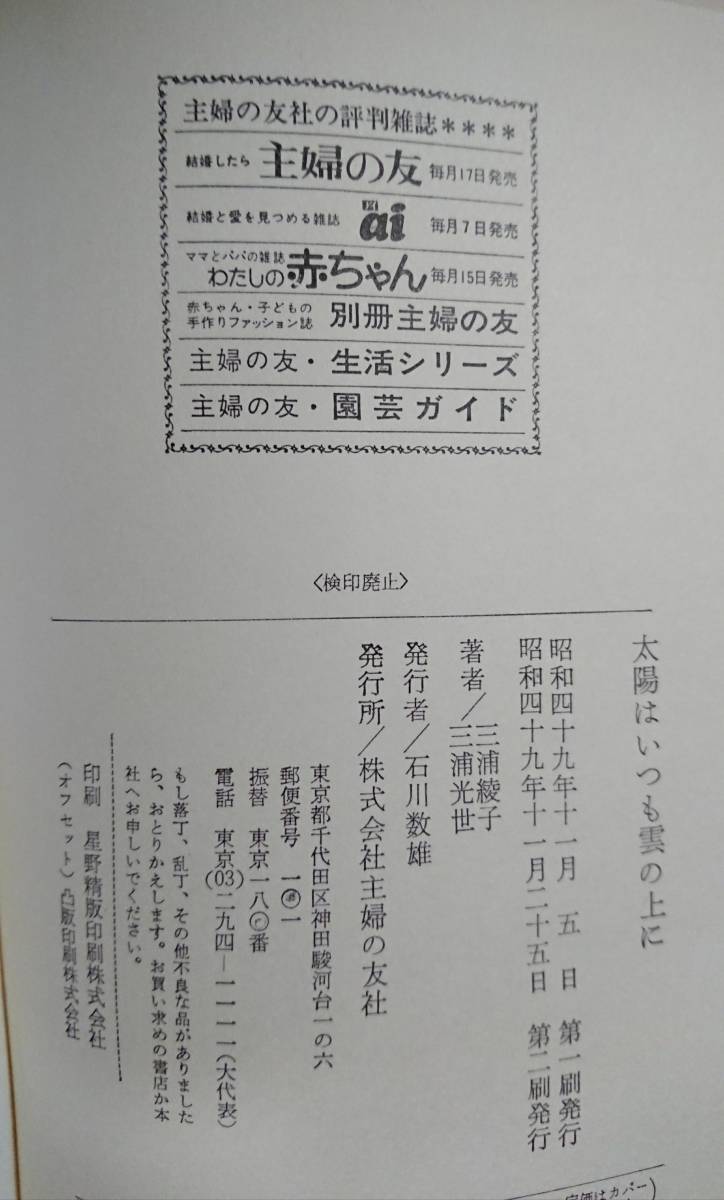 主婦の友社の評判雑誌＊＊＊＊
結婚したら 主婦の友 毎月17日発売
結婚と愛を見つめる雑誌 ai 毎月7日発売
ママとパパの雑誌 わたしの赤ちゃん 毎月15日発売
赤ちゃん・子どもの
手作りファッション誌 別冊主婦の友
主婦の友・生活シリーズ
主婦の友・園芸ガイド
〈検印廃止〉
太陽はいつも雲の上に
昭和四十九年十一月 五 日 第一刷発行
昭和四十九年十一月二十五日 第二刷発行
著者／三浦綾子
三浦光世
発行者／石川数雄
発行所／株式会社主婦の友社
東京都千代田区神田駿河台一の六
郵便番号 一〇一
振替 東京一八〇番
電話 東京(03)二九四―一一一一(大代表)
もし落丁、乱丁、その他不良な品がありました
ら、おとりかえします。お買い求めの書店か本
社へお申しいでください。
印刷 星野精版印刷株式会社
(オフセット) 凸版印刷株式会社
定価はカバー